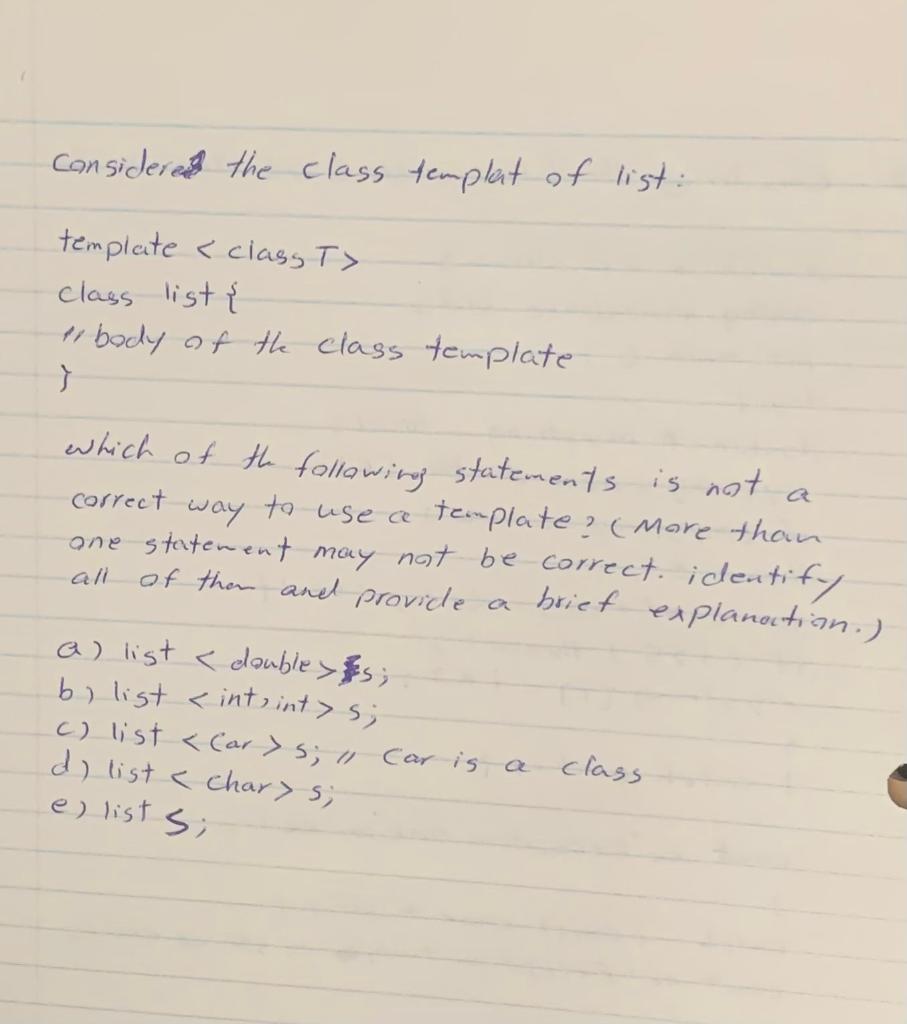 Considered the class templat of list:
template < class T>
class list {
// body of the class template
}
which of the following statements is not a
correct way to use a template? (More than
one statement may not be correct. identify
all of them and provide a brief explanation.)
a) list < double > s;
b) list < int, int > s;
c) list < Car > s; // Car is a class
d) list < char > s;
e) list s;